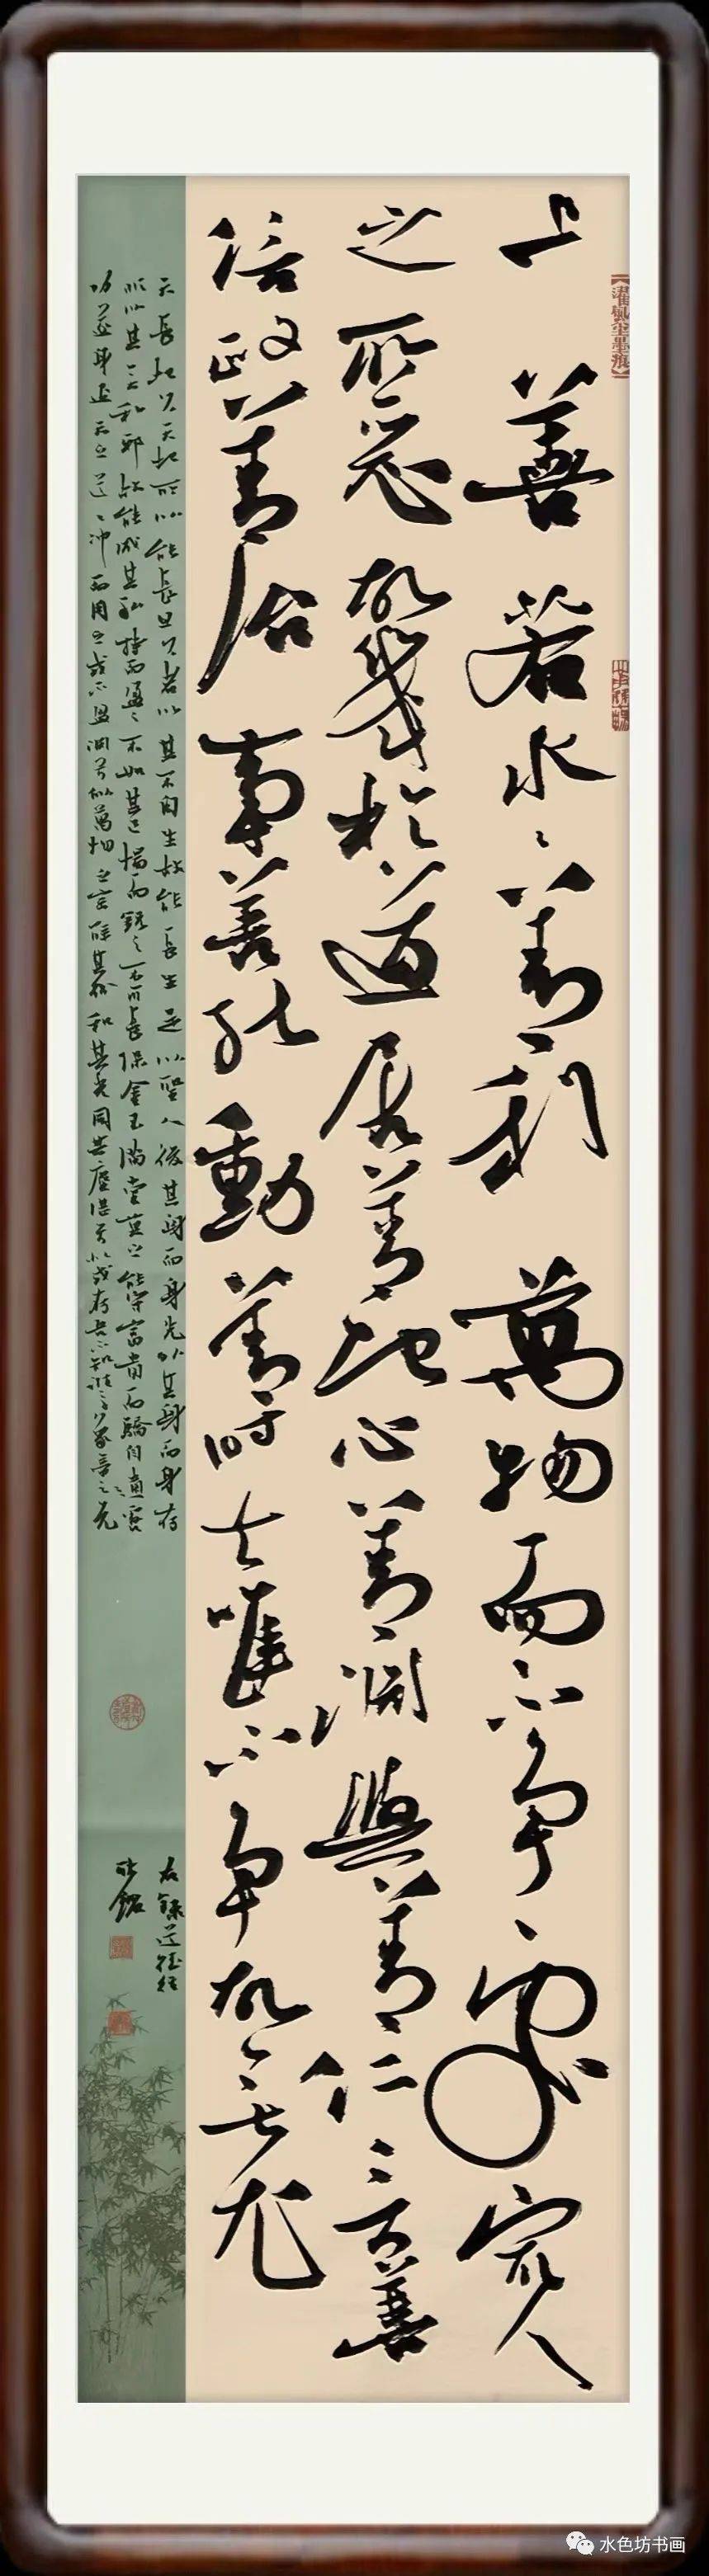 上善若水〻善利萬物而不争〻處衆人
之所惡故幾於道居善地心善淵與善仁〻言善
信政善治事善能動善時夫唯不争故無尤
天長地久天地所以能長且久者以其不自生故能長生是以聖人後其身而身先外其身而身存
非以其無私邪故能成其私持而盈之不如其已揣而銳之不可長保金玉滿堂莫之能守富貴而驕自遺其咎
功遂身退天之道道沖而用之或不盈淵兮似萬物之宗解其紛和其光同其塵湛兮似或存吾不知誰之子象帝之先
右錄道德經
水色坊书画